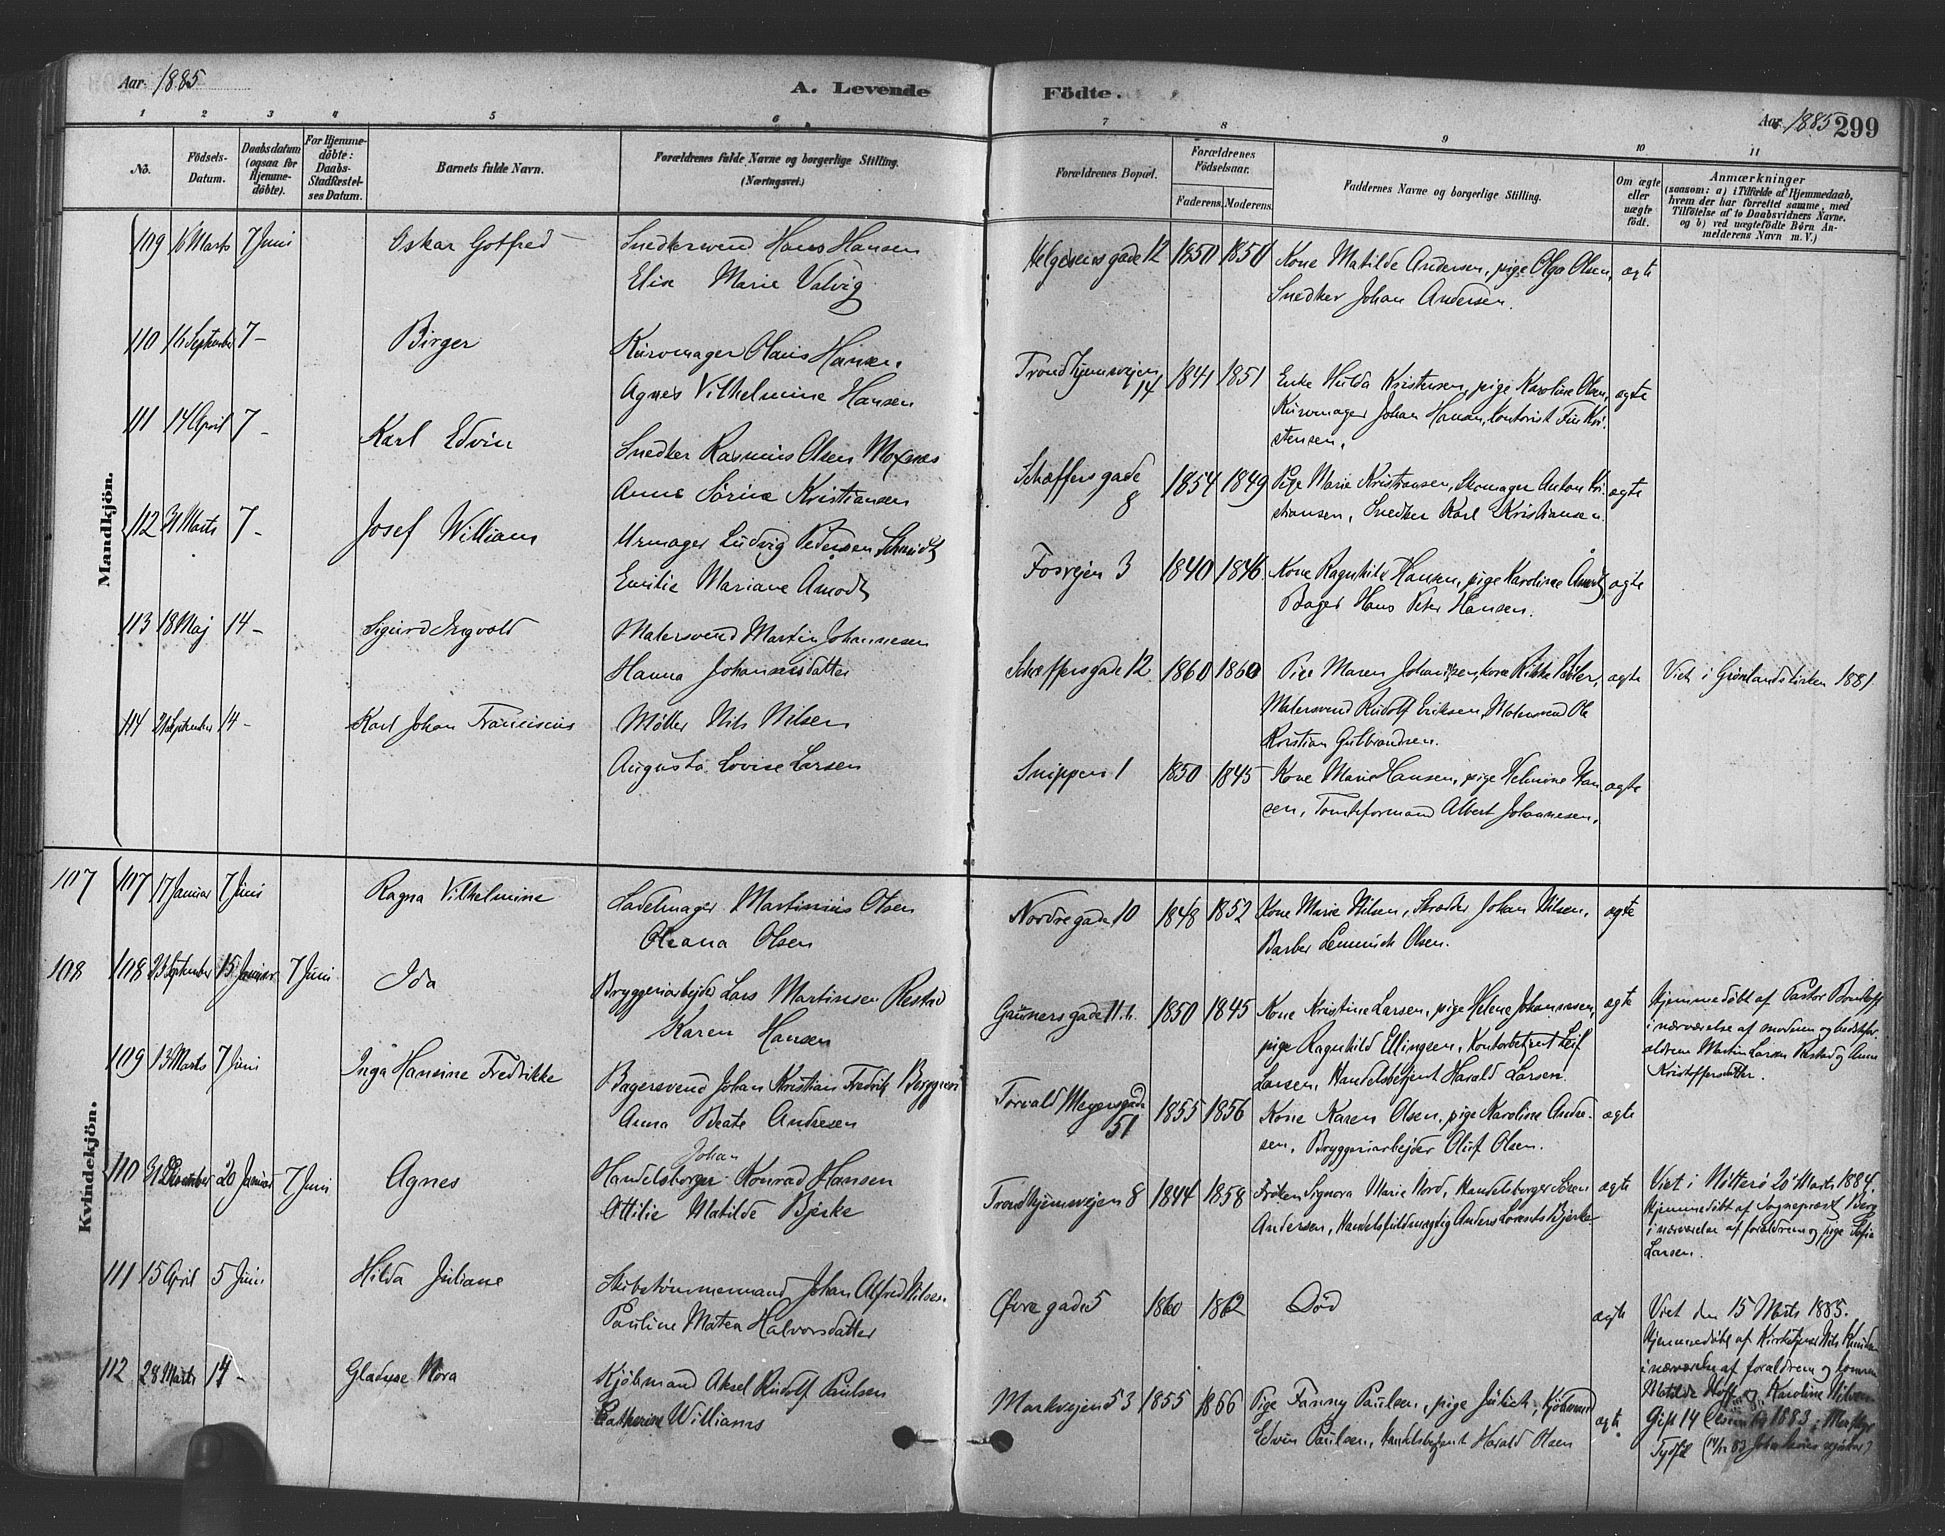 Aar. 1885
A. Levende Födte.
Aar. 1885 299
1 2 3 4 5 6 7 8 9 10 11
No.
Födsels-Datum.
Daabsdatum (ogsaa for Hjemme-döbte).
For Hjemme-döbte: Daabs-Stadfæstel-ses Datum.
Barnets fulde Navn.
Forældrenes fulde Navne og borgerlige Stilling. (Næringsvei.)
Forældrenes Bopæl.
Forældrenes Födselsaar.
Faderens. Moderens.
Faddernes Navne og borgerlige Stilling.
Om ægte eller uægte födt.
Anmærkninger
(saasom: a) i Tilfælde af Hjemmedaab, hvem der har forrettet samme, med Tilföielse af to Daabsvidners Navne, og b) ved uægtefödte Börn Anmelderens Navn m. V.)
Mandkjön.
109 16 Marts 7 Juni Oskar Gotfred
Snedkersvend Hans Hansen
Elise Marie Valvig
Helgesensgade 12 1850 1850
Kone Matilde Andersen, pige Olga Olsen,
Snedker Johan Andersen.
ægte
110 16 September 7 - Birger
Kurvmager Olaus Hansen.
Agnes Vilhelmine Hansen
Trondhjemsvejen 14 1841 1851
Enke Hulda Kristensen, pige Karoline Olsen,
Kurvmager Johan Hansen, kontorist Kri-
stensen.
ægte
111 14 April 7 - Karl Edvin
Snedker Rasmus Olsen Moxnes
Anne Sørine Kristiansen
Schæffersgade 8 1854 1849
Pige Marie Kristiansen, Skomager Anton Kri-
stiansen, Snedker Karl Kristiansen.
ægte
112 31 Marts 7 - Josef William
Urmager Ludvig Pedersen Schmidt
Emilie Mariane Amodt
Fosvejen 3 1840 1846
Kone Ragnhilde Hansen, pige Karoline Åmodt,
Bager Hans Peter Hansen.
ægte
113 18 Maj 14 - Sigurd Ingvald
Malersvend Martin Johannesen
Hanna Johansensdatter
Schæffersgade 12 1860 1860
Pige Maren Johansen, kone Rikke
Malersvend Rudolf Eriksen, Malersvend Ole
Kristian Gulbrandsen.
ægte
Viet i Grønlandskirken 1881
114 21 September 14 - Karl Johan Franciscus
Møller Nils Nilsen
Augusta Lovise Larsen
Snippen 1 1850 1845
Kone Marie Hansen, pige Helmine Han-
sen, Tomteformand Albert Johannesen.
ægte
Kvindekjön.
107 107 17 Januar 7 Juni Ragna Vilhelmine
Sadelmager Martinius Olsen
Oleana Olsen
Nordregade 10 1848 1852
Kone Marie Nilsen, Skrædder Johan Nilsen,
Barber Olsen.
ægte
108 108 23 September 15 Januar 7 Juni Ida
Bryggeriarbejder Lars Martinsen Restad
Karen Hansen
Gaunersgade 11 b. 1850 1845
Kone Kristine Larsen, pige Helene Johannesen,
pige Ragnhild Ellingsen, Kontorbetjent Leif
Larsen, Handelsbetjent Harald Larsen.
ægte
Hjemmedøbt af Pastor
i nærværelse af modren og bedstefor-
ældrene Martin Larsen Restad og Anne
Kristoffersdatter.
109 13 Marts 7 Juni Inga Hansine Fredrikke
Bagersvend Johan Kristian Fredrik
Anna Beate Andresen
Torvald Meyersgade 51 1855 1856
Kone Karen Olsen, pige Karoline Andre-
sen, Bryggeriarbejder Oluf Olsen.
ægte
110 31 December 20 Januar 7 Juni Agnes
Johan
Handelsborger Konrad Hansen
Ottilie Matilde Bjerke
Trondhjemsvejen 8 1844 1858
Frøken Signora Marie Nord, Handelsborger Søren
Andersen, Handelsfuldmægtig Anders Lorents Bjerke
ægte
Viet i Nøtterø 20 Marts 1884.
Hjemmedøbt af Sognepræst Berg
i nærværelse af forældrene og pige Sofie
Larsen.
111 15 April 5 Juni Hilda Juliane
Skibstømmermand Johan Alfred Nilsen
Pauline Matea Halvorsdatter
Øvregade 5 1860 1862 Død
ægte
Viet den 15 Marts 1885.
Hjemmedøbt af Nils Knudsen
i nærværelse af forældrene og konerne
Matilde Hoff og Karoline Nilsen
112 28 Marts 14 - Gladyse Nora
Kjøbmand Aksel Rudolf Paulsen
Catherine Williams
Markvejen 53 1855 1866
Pige Fanny Paulsen, pige Kjøbmand
Edvin Paulsen, Handelsbetjent Harald Olsen
ægte
Gift 14 1883 i
Tydfil